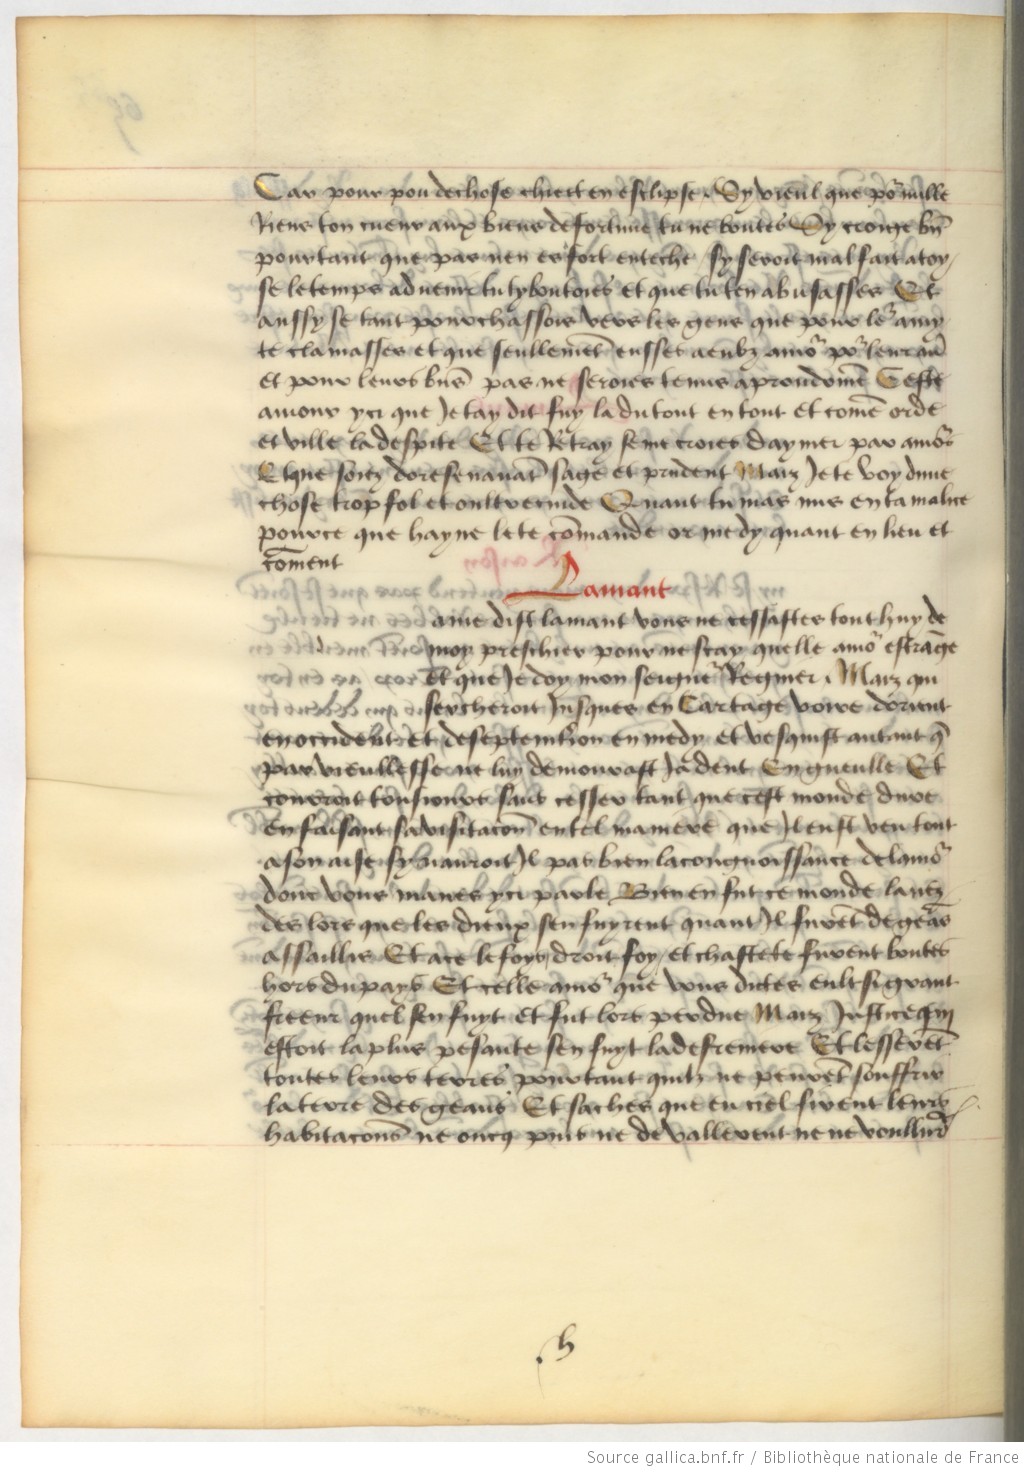 Car pour pou de chose chiet en esclipse Sy vieul que po' nulle
Riens ton cueur aux biens de fortune tu ne boutes Sy
pourtant que par nen es fort enteche sy seroit mal fait a toy
se le temps advenir tu ty boutoies et que tu ten abusasses Et
aussy se tant pourchassois vers les gens que pour le' amy
te clamasses et que seullemēt eusses a eulz amo' po' leur
et pour leurs bn̄s pas ne seroies tenus a proudomē Geste
amour yci que Je tay dit fuy la du tout en tout et comē orde
et ville la despite Et te Retray se me croies daymer par amo'
Et que soiez doresenavāt sage et prudent Maiz Je te voy dune
chose trop fol et oultrecuide Quant tu mas mis en ta malue
pource que hayne le te cōmande or me dy quant en lieu et
cōment
Lamant
ame dist lamant vous ne cessastes tout huy de
moy preschier pour ne scay quelle amo' estrāge
Et que Je doy mon seigne' Regnier Maiz qui
sercheroit Jusques en Cartage voire dorient
en occident Et de septemtion en medy et vesquist autant q̄
par vieullesse ne luy demourast Ja dent En gueulle Et
courroit tousiours sans cesser tant que cest monde dure
En faisant sa visitacōn en tel maniere que Il eust veu tout
a son aise sy nauroit Il pas bien la congnoissance de lamo'
dont vous maves yci parle Bien en fut ce monde lavez
des lors que les dieux sen fuyrent quant Il furēt de geās
assaillis Et a ce le foys droit foy et chastete furent boutes
hors du pays Et celle amo' que vous dictes eult si grant
freeur quel sen fuyt et fut lors perdue Maiz Justice qui
estoit la plus pesante sen fuyt la derreniere Et lesserēt
toutes leurs terres pourtant quilz ne peurēt souffrir
la terre des geans Et saches que en ciel firent leurs
habitacōns ne oncq puis ne devallerent ne ne voullurē
h
Source gallica.bnf.fr / Bibliothèque nationale de France